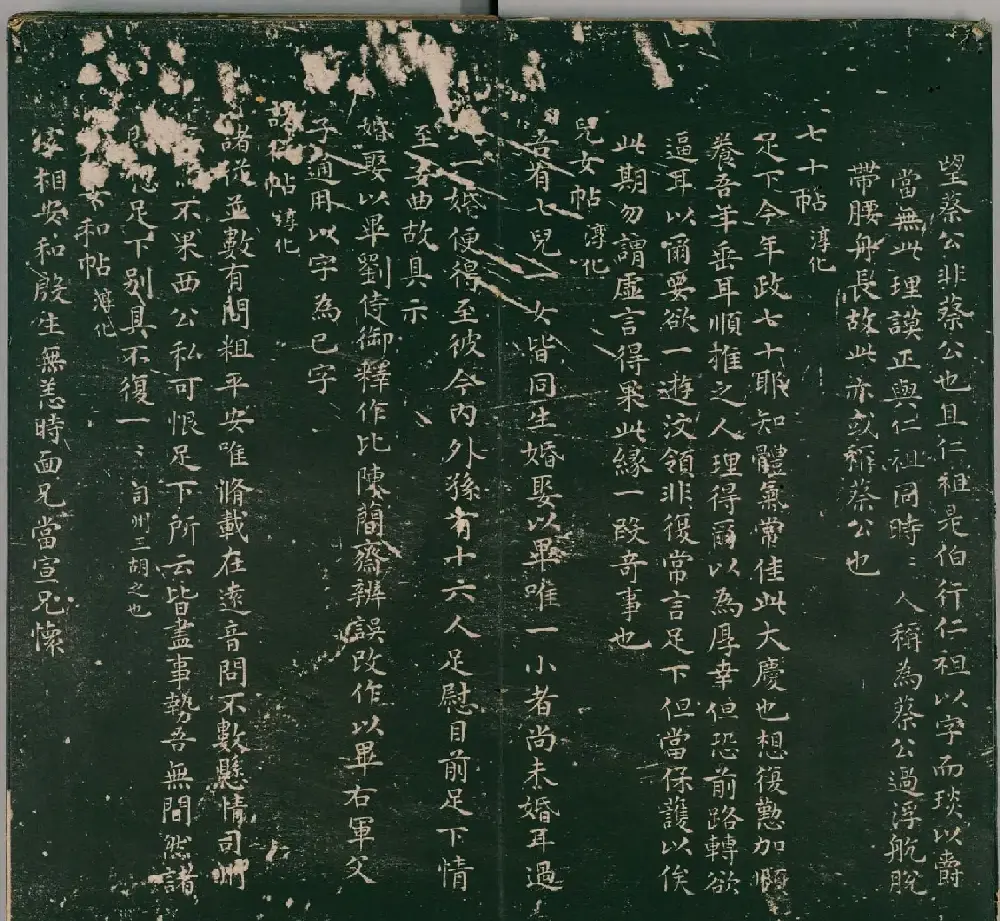 望蔡公非蔡公也且仁祖是伯行仁祖以字而琰以爵
當無此理謨正與仁祖同時〻人稱為蔡公過浮航脫
帶腰舟長故此亦或稱蔡公也
七十帖 淳化
足下今年政七十耶知體氣常佳此大慶也想復懃加頤
養吾年垂耳順推之人理得爾以為厚幸但恐前路轉欲
逼耳以爾要欲一遊汶領非復常言足下但當保護以俟
此期勿謂虛言得果此緣一段奇事也
兒女帖 淳化
吾有七兒一女皆同生婚娶以畢唯一小者尚未婚耳過
此一婚便得至彼今內外孫有十六人足慰目前足下情
至委曲故具示
婚娶以畢劉侍御釋作比陵蘭齋辨誤改作以畢右軍父
子通用以字為已字
諸從帖 淳化
諸從並數有問粗平安唯脩載在遠音問不數懸情司州
不果西公私可恨足下所云皆盡事勢吾無間然諸
足下別具不復一〻 司州三胡之也
安和帖 淳化
相安和殷生無恙時面兄當宣兄懷